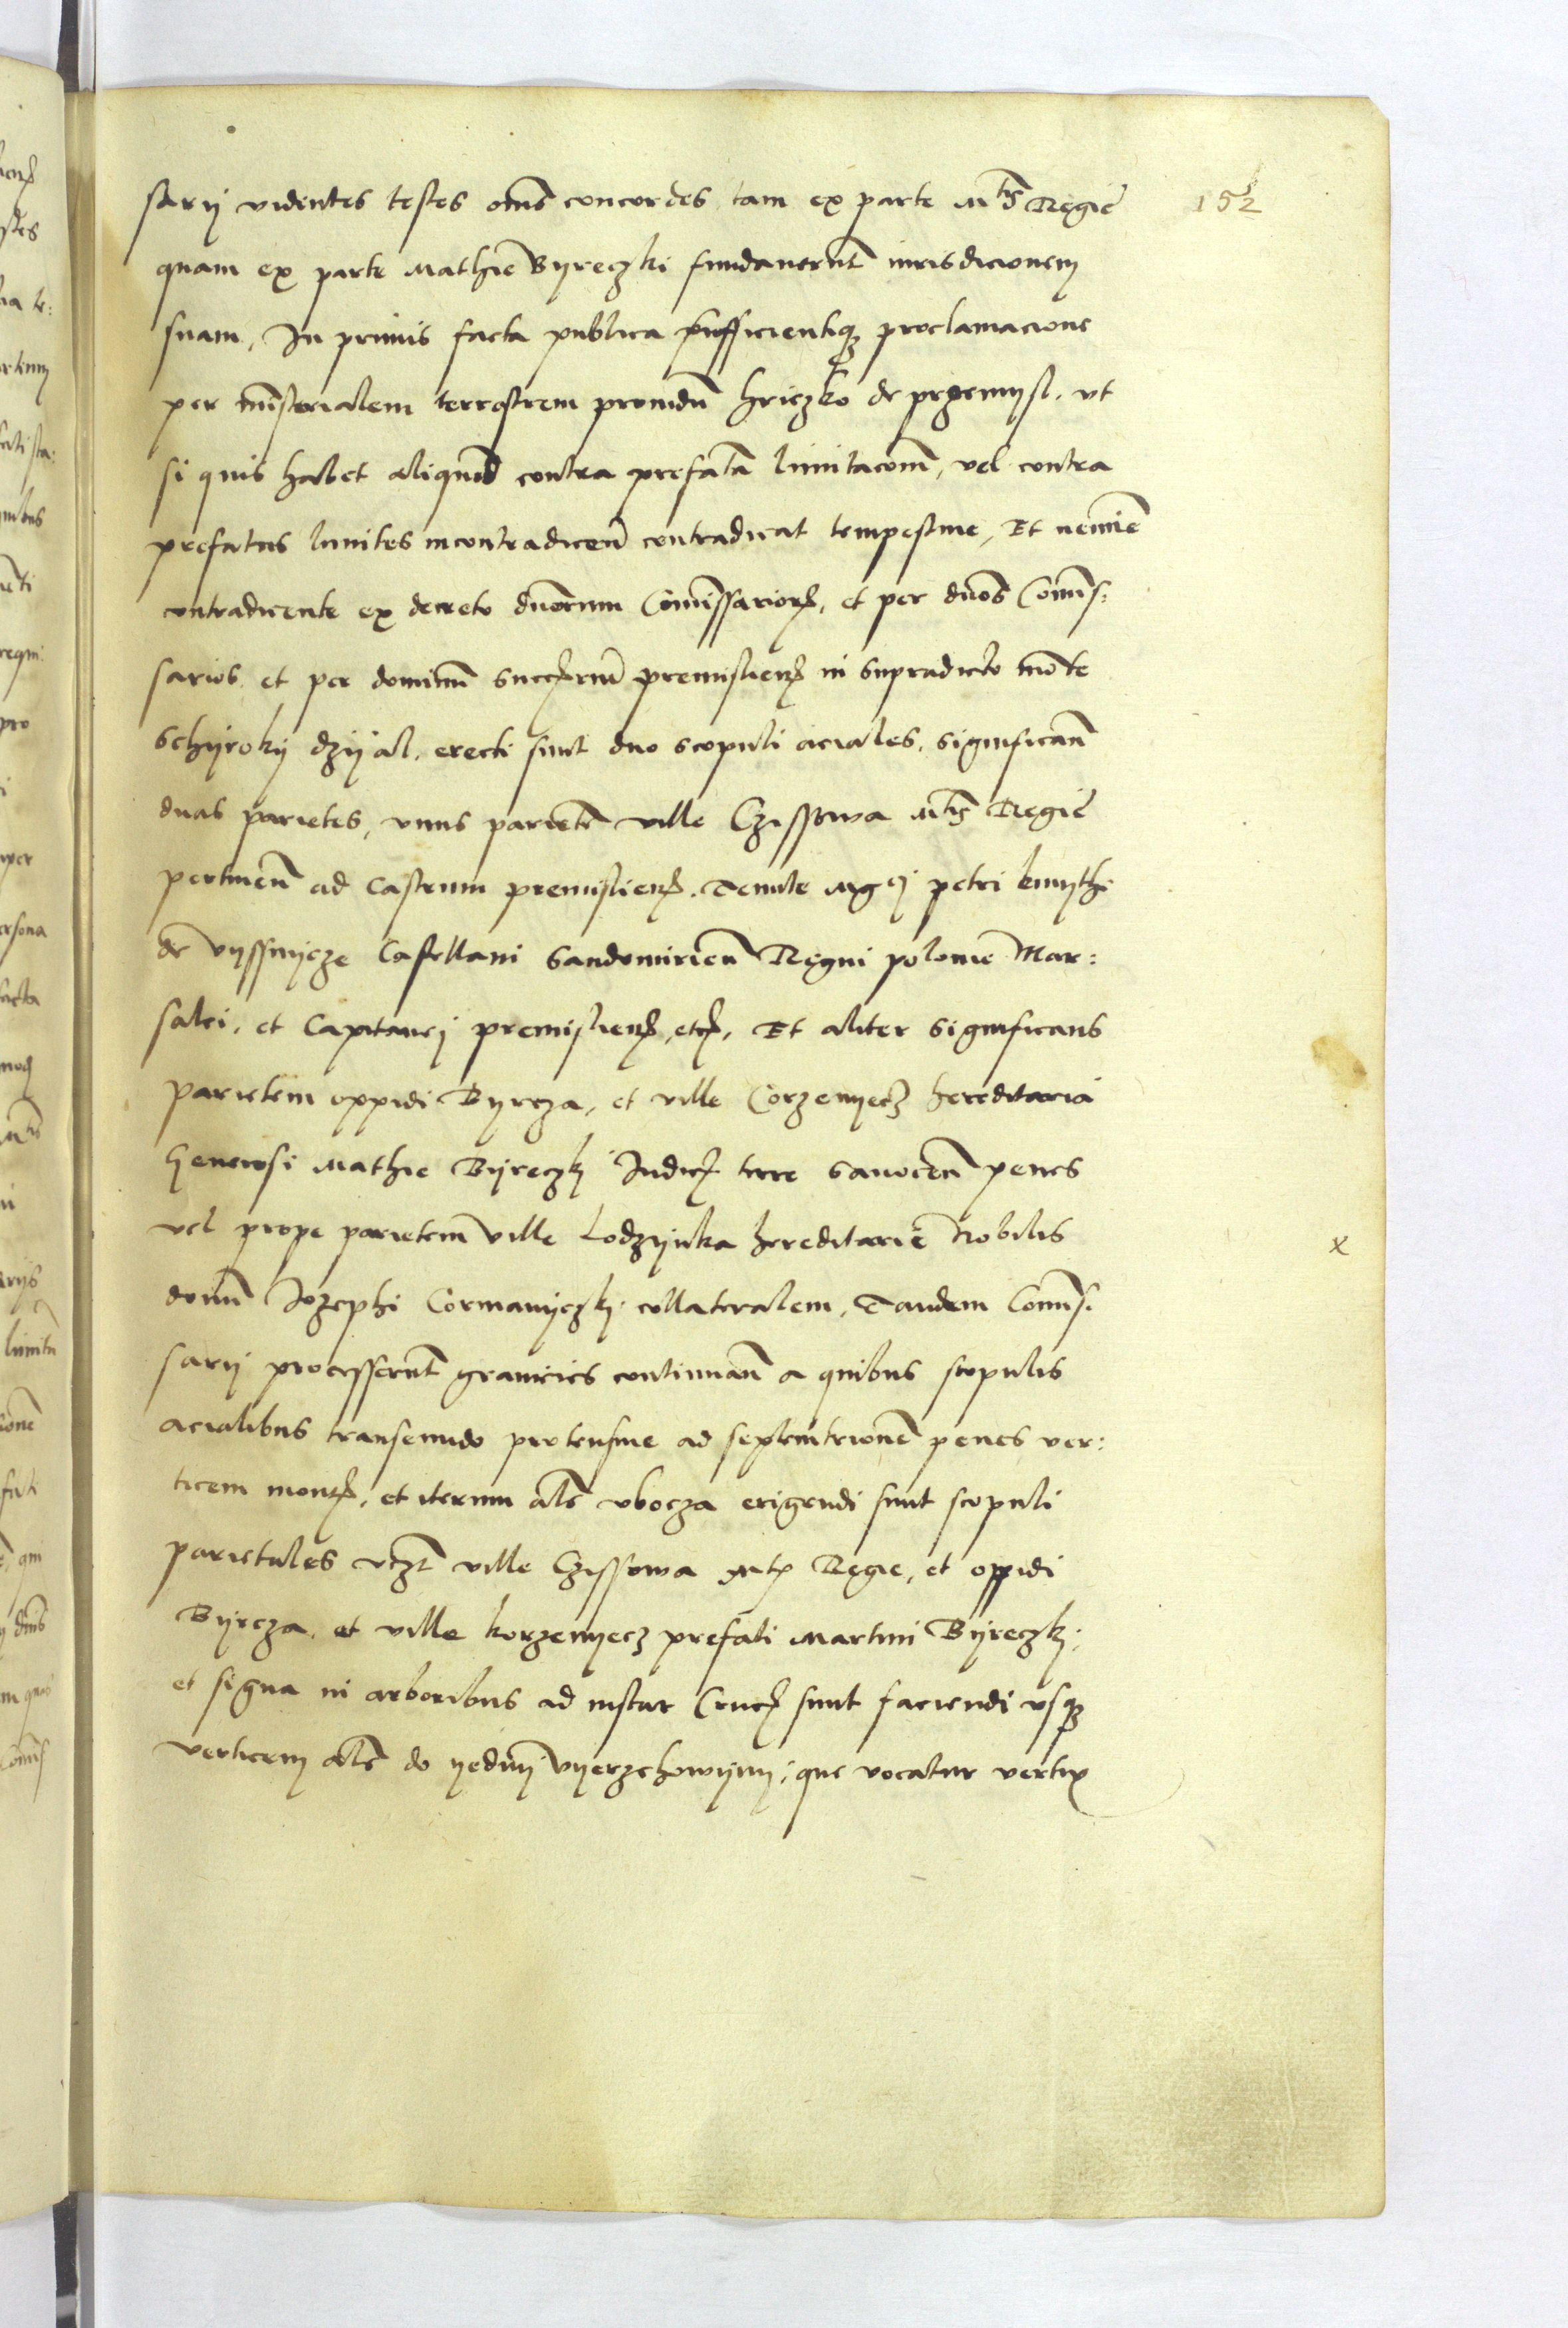 sarij videntes testes oms concordes tam ex parte Mtis Regie
152
quam ex parte Mathie Byreczki fundaverunt iurisdicionem
suam, In primis facta publica sufficientiqz proclamacione
per ministerialem terrestrem providum Hriczko de przemysl. vt
si quis habet aliquid contra prefata limitacom, vel contra
prefatus limites incontradicen contradicat tempestiue, Et nemine
contradicente ex decreto duorum Comissarior, et per duos Comis:
sarios, et per dominum Succamerm premislien in supradicto monte
Schyroky dzyal, erecti sunt duo scopuli aciales, significan
duas parietes, vnus parietem ville Czissowa Mtis Regie
pertinen ad Castrum premislien. Tenute Mgci petri kmythi
de vyssnycze Castellani Sandomirien Regni polonie Mar:
salci, et Capitanei premislien, etc, Et aliter significans
parietem oppidi Byrcza, et ville Corzenyecz hereditaria
Generosi Mathie Byreczky Iudicis terre Sanocen penes
vel prope parietem ville Lodzynka hereditarie Nobilis
x
domini Iozephi Cormanyczky collateralem, Tandem Comis:
sarij processerunt granicies continuan a quibus scopulis
acialibus transeundo protensiue ad septemtrionem penes ver:
ticem montis, et iterum als vbocza erigendi sunt scopuli
parietales vtzt ville Czissowa Mtis Regie, et oppidi
Byrcza et ville korzenyecz prefati Martini Byreczky;
et signa in arboribus ad instar Crucis sunt faciendi vsqz
verticem als do yedney vyerzchowyny; que vocatur vertix